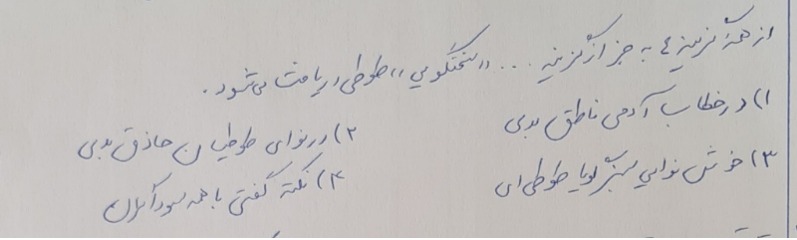 از همهٔ گزینه ها به جز از گزینه ... «سخنگویی» طوطی دریافت می‌شود.
۱) در خطاب آدمی ناطق بدی
۲) در نوای طوطیان حاذق بدی
۳) خوش نوایی سبز گویا طوطی ای
۴) نکته گفتی با همه سوداگران